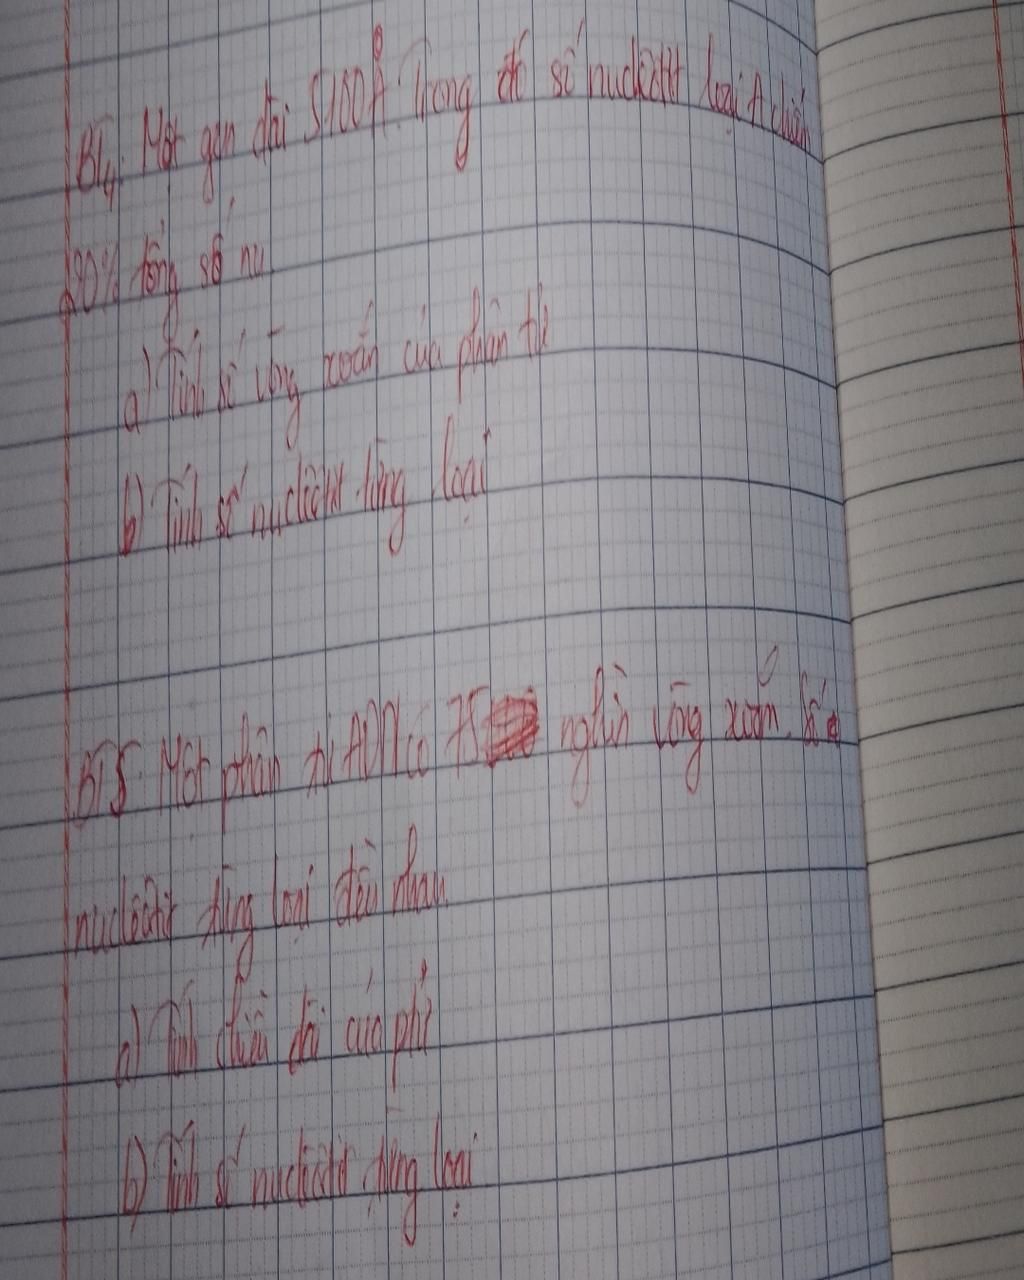 BT4. Một gen dài 5100Å. Trong đó số nuclêôtit loại A chiếm
20% tổng số nu
a) Tính số vòng xoắn của phân tử
b) Tính số nuclêôtit từng loại
BT5. Một phân tử ADN có 75 nghìn vòng xoắn. Số
nuclêôtit từng loại đều nhau.
a) Tính chiều dài của ptử
b) Tính số nuclêôtit từng loại